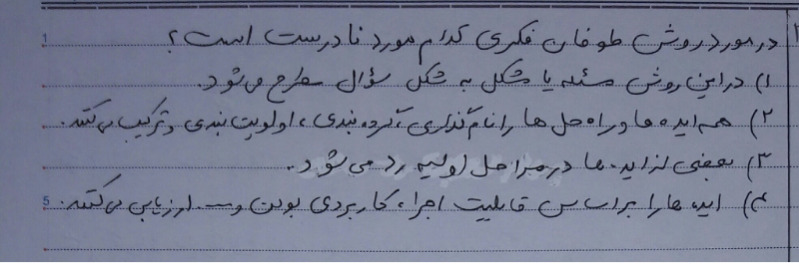 در مورد روش طوفان فکری کدام مورد نادرست است؟
۱) در این روش مسئله یا مشکل به شکل سؤال مطرح می‌شود.
۲) همه ایده ها و راه حل ها را نام گذاری، گروه بندی، اولویت بندی و ترکیب می‌کنند.
۳) بعضی از ایده ها در مراحل اولیه رد می‌شود.
۴) ایده ها را براساس قابلیت اجرا، کاربردی بودن و... ارزیابی می‌کنند.